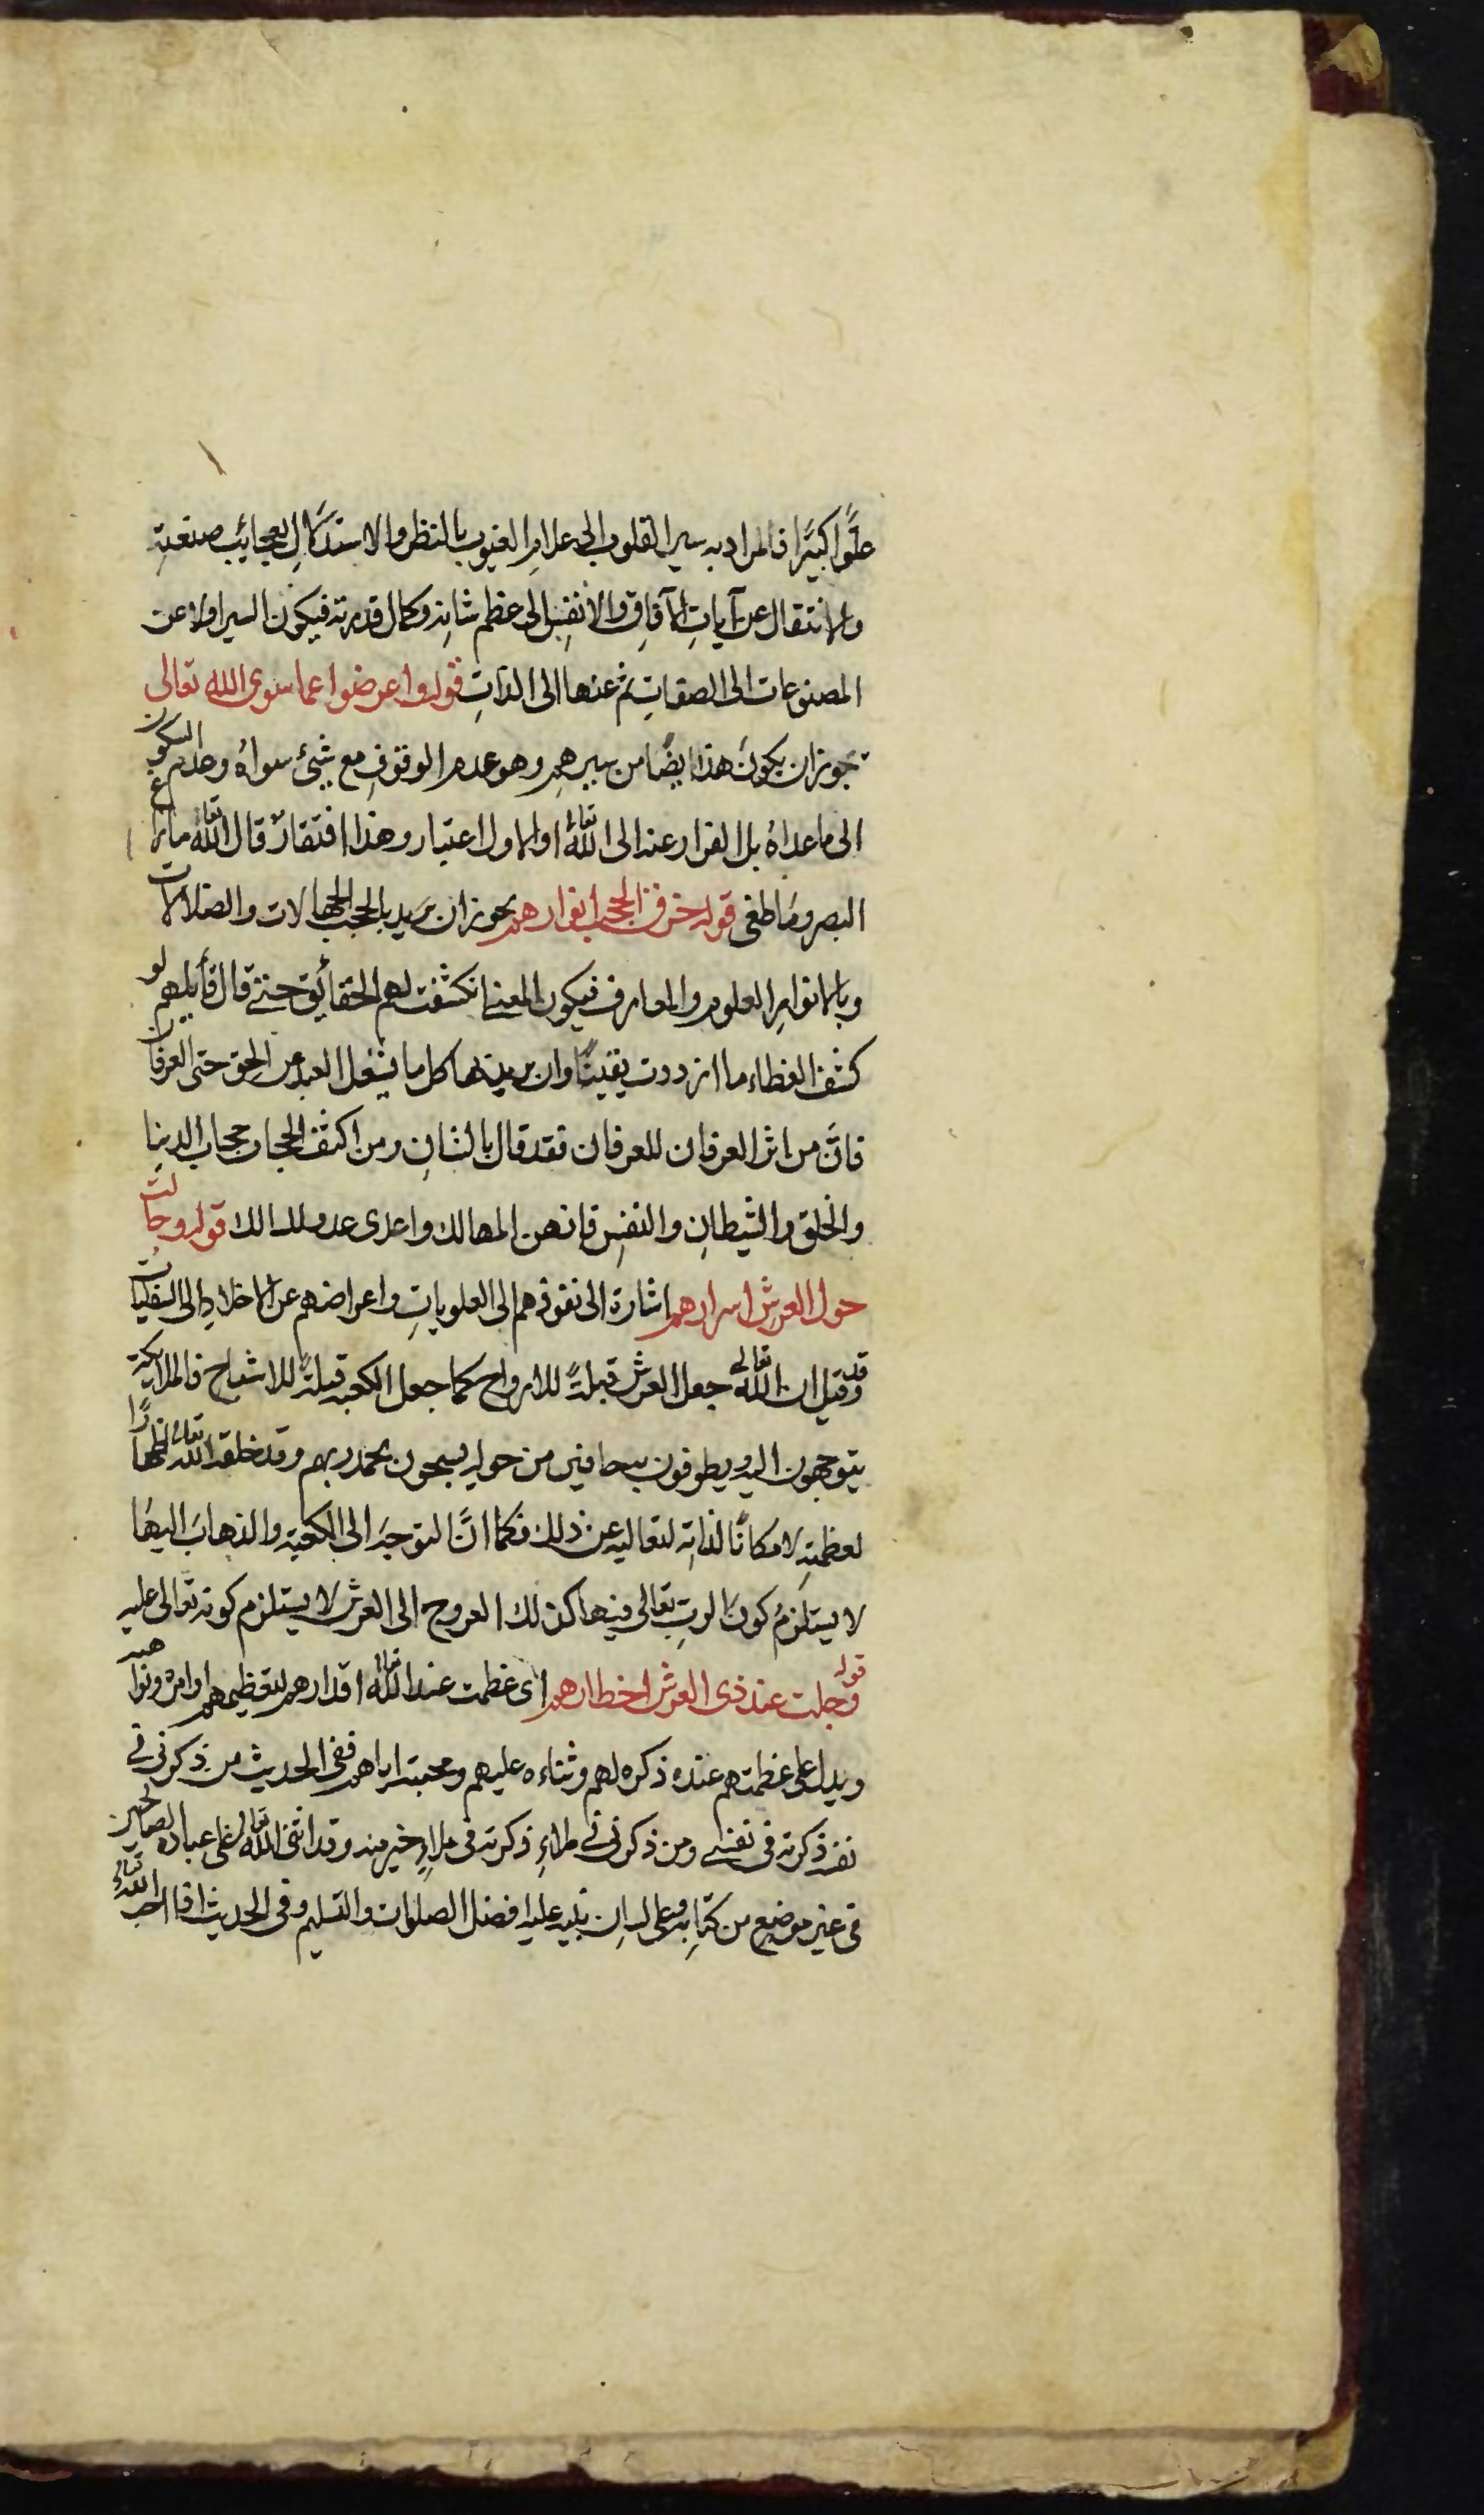 علوًّا كبيرًا فالمراد به سير القلوب الى علام الغيوب بالنظر والاستدلال بعجائب صنعته
والانتقال عن آيات الآفاق والانفس الى عظم شانه وكمال قدرته فيكون السير اولا عن
المصنوعات الى الصفات ثم عنها الى الذات قوله واعرضوا عما سوى الله تعالى
يجوز ان يكون هذا ايضًا من سيرهم وهو عدم الوقوف مع شئ سواه وعدم السكون
الى ما عداه بل الفرار عنه الى الله تعالى او الاول اعتبار وهذا افتقار قال الله تعالى ما زاغ
البصر وما طغى قوله خرقت الحجب انوارهم يجوز ان يريد بالحجب الجهالات والضلالات
وبالانوار العلوم والمعارف فيكون المعنى انكشفت لهم الحقائق حتى قال قايلهم لو
كشف الغطاء ما ازددت يقينًا وان يريد بها كل ما يشغل العبد عن الحق حتى العرفان
فان من اثر العرفان للعرفان فقد قال بالثانى ومن اكثف الحجاب حجاب الدنيا
والخلق والشيطان والنفس فانهن المهالك واعدى عدو للسالك قوله وجالت
حول العرش اسرارهم اشارة الى نفوذهم الى العلويات واعراضهم عن الاخلاد الى السفليات
وقد قيل ان الله تعالى جعل العرش قبلةً للارواح كما جعل الكعبة قبلةً للاشباح فالملائكة
يتوجهون اليه ويطوفون به حافين من حوله يسبحون بحمد ربهم وقد خلقه الله تعالى اظهارًا
لعظمته لا مكانًا لذاته لتعاليه عن ذلك فكما انّ التوجه الى الكعبة والذهاب اليها
لا يستلزم كون الرب تعالى فيها كذلك العروج الى العرش لا يستلزم كونه تعالى عليه
قوله وجلت عند ذى العرش اخطارهم اى عظمت عند الله تعالى اقدارهم لتعظيمهم اوامره ونواهيه
ويدل على عظمتهم عنده ذكره لهم وثناءه عليهم ومحبته اياهم ففى الحديث من ذكرنى فى
نفسه ذكرته فى نفسى ومن ذكرنى فى ملاء ذكرته فى ملاء خير منه وقد اثنى الله تعالى على عباده الصالحين
فى غير موضع من كتابه وعلى لسان نبيه عليه افضل الصلوات والتسليم وفى الحديث اذا احب الله تعالى